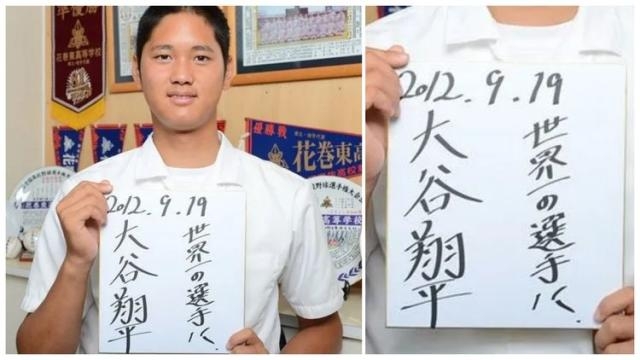 準優勝
花巻東高等学校
優勝戦
花巻東高
高等学校
2012.9.19
世界一の選手に.
大谷翔平
2012.9.19
世界一の選手に.
大谷翔平